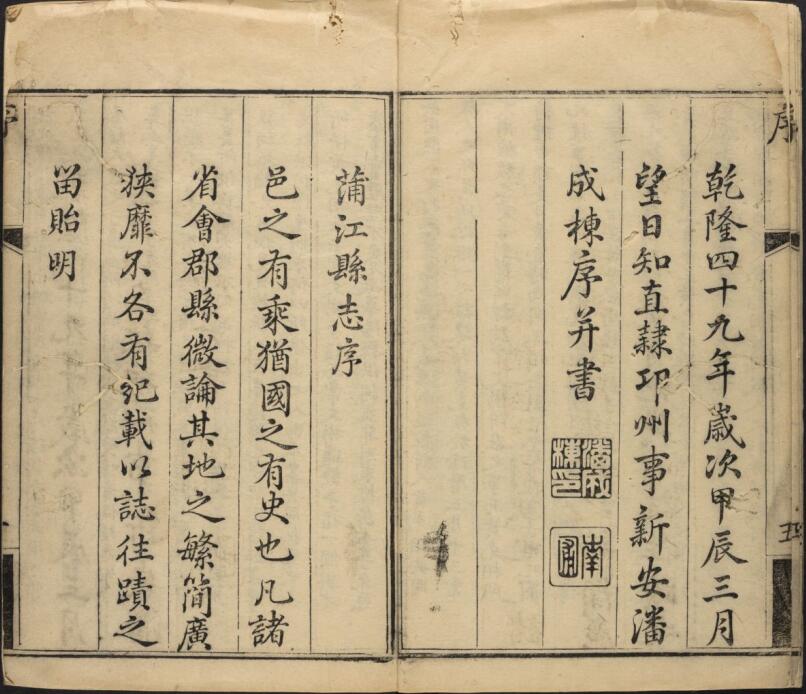 序
乾隆四十九年歲次甲辰三月
望日知直隸邛州事新安潘
成棟序并書
潘成棟印
五
蒲江縣志序
邑之有乘猶國之有史也凡諸
省會郡縣微論其地之繁簡廣
狹靡不各有紀載以誌往蹟之
留貽明
序